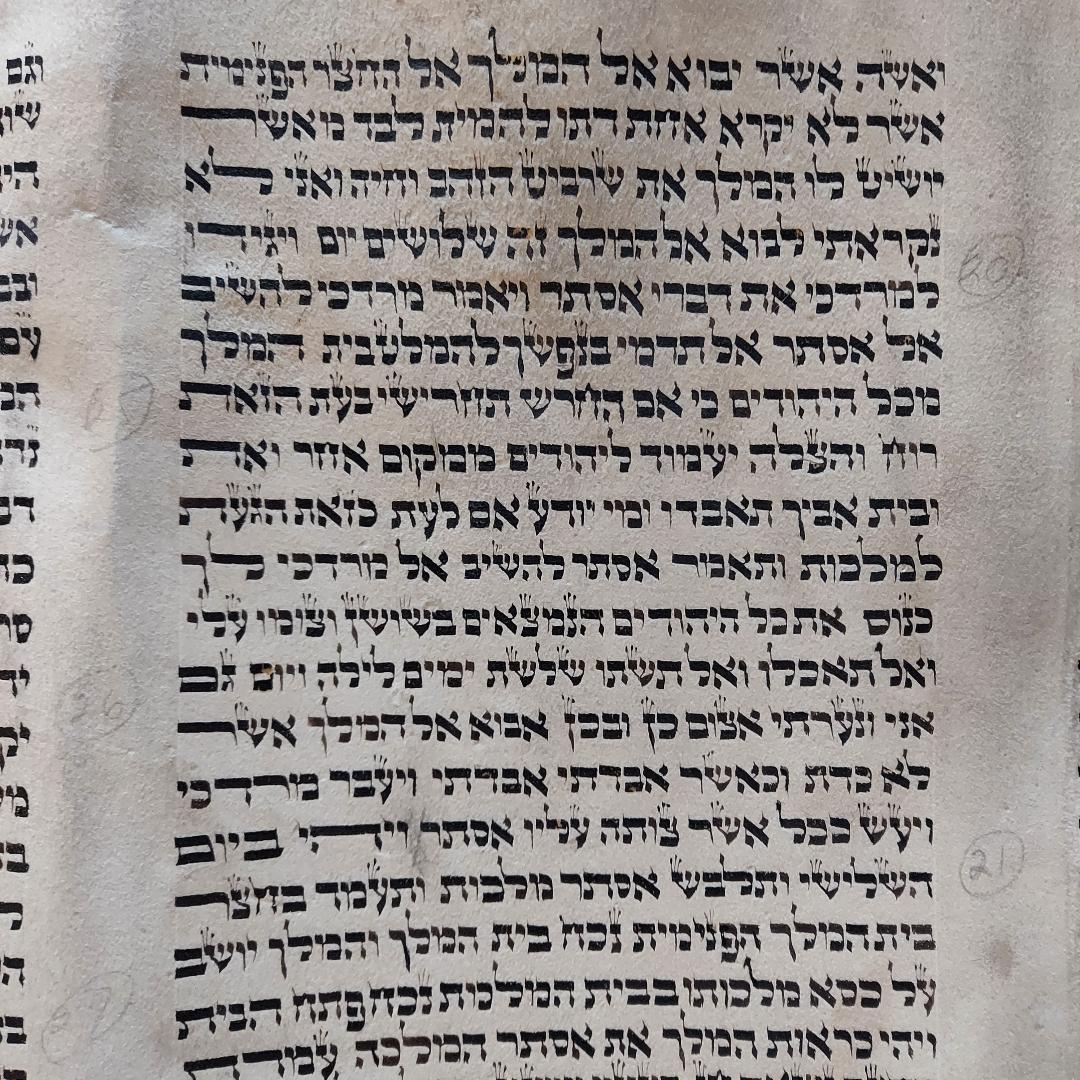 ואשה אשר יבוא אל המלך אל החצר הפנימית
אשר לא יקרא אחת דתו להמית לבד מאשר
יושיט לו המלך את שרביט הזהב וחיה ואני לא
נקראתי לבוא אל המלך זה שלושים יום ויגידו
למרדכי את דברי אסתר ויאמר מרדכי להשיב
אל אסתר אל תדמי בנפשך להמלט בית המלך
מכל היהודים כי אם החרש תחרישי בעת הזאת
רוח והצלה יעמוד ליהודים ממקום אחר ואת
ובית אביך תאבדו ומי יודע אם לעת כזאת הגעת
למלכות ותאמר אסתר להשיב אל מרדכי לך
כנוס את כל היהודים הנמצאים בשושן וצומו עלי
ואל תאכלו ואל תשתו שלשת ימים לילה ויום גם
אני ונערתי אצום כן ובכן אבוא אל המלך אשר
לא כדת וכאשר אבדתי אבדתי ויעבר מרדכי
ויעש ככל אשר צותה עליו אסתר ויהי ביום
השלישי ותלבש אסתר מלכות ותעמד בחצר
בית המלך הפנימית נכח בית המלך והמלך יושב
על כסא מלכותו בבית המלכות נכח פתח הבית
ויהי כראות המלך את אסתר המלכה עמדת
20
21
26